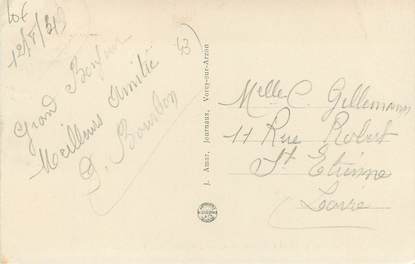 43
Grand Bonjour
Meilleures Amitié
J. Amar, Journaux, Vorey-sur-Arzon
Melle C. Gillemann
11 Rue Robert
St Etienne
Loire